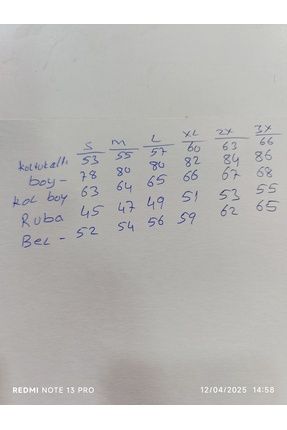 S M L XL 2X 3X
koltukaltı 53 55 57 60 63 66
boy - 78 80 80 82 84 86
kol boy 63 64 65 66 67 68
Ruba 45 47 49 51 53 55
Bel - 52 54 56 59 62 65
REDMI NOTE 13 PRO 12/04/2025 14:58